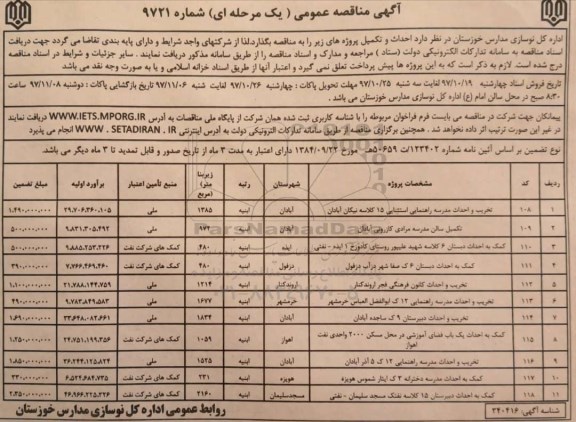 آگهی مناقصه عمومی ( یک مرحله ای) شماره ۹۷۲۱
اداره کل نوسازی مدارس خوزستان در نظر دارد احداث و تکمیل پروژه های زیر را به مناقصه بگذارد.لذا از شرکتهای واجد شرایط و دارای پایه بندی تقاضا می گردد جهت دریافت
اسناد مناقصه به سامانه تدارکات الکترونیکی دولت (ستاد ) مراجعه و مدارک و اسناد مناقصه را از طریق سامانه مذکور دریافت نمایند . سایر جزئیات و شرایط در اسناد مناقصه
درج شده است. لازم به ذکر است که به این پروژه ها پیش پرداخت تعلق نمی گیرد و اعتبار آنها از طریق اسناد خزانه اسلامی و یا به صورت وجه نقد می باشد
تاریخ فروش اسناد چهارشنبه ۹۷/۱۰/۱۹ لغایت سه شنبه ۹۷/۱۰/۲۵ مهلت تحویل پاکات : چهارشنبه ۹۷/۱۰/۲۶ لغایت شنبه ۹۷/۱۱/۰۶ تاریخ بازگشایی پاکات : دوشنبه ۹۷/۱۱/۰۸ ساعت
۸/۳۰ صبح در محل سالن امام (ع) اداره کل نوسازی مدارس خوزستان می باشد .
پیمانکان جهت شرکت در مناقصه می بایست فرم فراخوان مربوطه را با شناسه کاربری ثبت شده همان شرکت از پایگاه ملی مناقصات به آدرس WWW.IETS.MPORG.IR دریافت نمایند
در غیر این صورت ترتیب اثر داده نخواهد شد . همچنین برگزاری مناقصه از طریق سامانه تدارکات الترونیکی دولت به آدرس اینترنتی WWW . SETADIRAN . IR انجام می پذیرد
نوع تضمین بر اساس آئین نامه شماره ۱۲۳۴۰۲/ت ۵۰۶۵۹ هـ مورخ ۱۳۹۴/۰۹/۲۲ دارای اعتبار به مدت ۳ ماه از تاریخ صدور و قابل تمدید تا ۳ ماه دیگر می باشد.
ردیف کد مشخصات پروژه شهرستان رتبه زیربنا (متر مربع) منبع تأمین اعتبار برآورد اولیه مبلغ تضمین
۱ ۱۰۸ تخریب و احداث مدرسه راهنمایی استثنایی ۱۵ کلاسه نیکان آبادان آبادان ابنیه ۱۳۸۵ ملی ۲۹.۷۰۶.۳۶۰.۱۰۵ ۱.۴۹۰.۰۰۰.۰۰۰
۲ ۱۰۹ تکمیل سالن مدرسه مرادی کارونی آبادان آبادان ابنیه ۹۷۲ ملی ۹.۸۳۱.۳۰۵.۴۹۲ ۵۰۰.۰۰۰.۰۰۰
۳ ۱۱۰ کمک به احداث دبستان ۶ کلاسه شهید علیپور روستای کادوزخ ۱ ایذه - نفتی ایذه ابنیه ۴۸۰ کمک های شرکت نفت ۹.۸۸۵.۲۵۳.۳۲۶ ۵۰۰.۰۰۰.۰۰۰
۴ ۱۱۱ کمک به احداث دبستان ۶ ک صفا شهر دزآب دزفول دزفول ابنیه ۴۸۰ کمک های شرکت نفت ۷.۷۶۶.۴۶۹.۴۶۰ ۳۹۰.۰۰۰.۰۰۰
۵ ۱۱۲ تخریب و احداث کانون فرهنگی فجر اروندکنار اروندکنار ابنیه ۱۲۱۴ ملی ۲۱.۷۸۸.۱۴۴.۷۵۹ ۱.۱۰۰.۰۰۰.۰۰۰
۶ ۱۱۳ تخریب و احداث مدرسه راهنمایی ۱۲ ک ابوالفضل العباس خرمشهر خرمشهر ابنیه ۱۶۷۷ ملی ۹.۷۸۳.۸۴۹.۵۸۳ ۴۹۰.۰۰۰.۰۰۰
۷ ۱۱۴ تخریب و احداث دبیرستان ۹ ک ساجده آبادان آبادان ابنیه ۱۸۳۴ ملی ۳۳.۶۴۸.۰۸۲.۶۶۱ ۱.۶۹۰.۰۰۰.۰۰۰
۸ ۱۱۵ کمک به احداث یک باب فضای آموزشی در محل مسکن ۲۰۰۰ واحدی نفت اهواز اهواز ابنیه ۱۰۵۹ کمک های شرکت نفت ۲۴.۷۵۱.۱۹۹.۲۵۶ ۱.۲۵۰.۰۰۰.۰۰۰
۹ ۱۱۶ تخریب و احداث مدرسه راهنمایی ۱۲ ک ۵ آذر آبادان آبادان ابنیه ۱۵۲۵ ملی ۳۶.۲۴۴.۱۲۵.۸۲۴ ۱.۸۵۰.۰۰۰.۰۰۰
۱۰ ۱۱۷ کمک به احداث مدرسه دخترانه ۳ ک ایثار شموس هویزه هویزه ابنیه ۲۳۱ کمک های شرکت نفت ۶.۵۲۴.۶۸۴.۷۳۵ ۳۳۰.۰۰۰.۰۰۰
۱۱ ۱۱۸ کمک به احداث دبیرستان ۱۵ کلاسه نفتک مسجد سلیمان - نفتی مسجدسلیمان ابنیه ۲۱۶۰ کمک های شرکت نفت ۴۶.۹۶۶.۲۲۵.۳۲۶ ۲.۳۵۰.۰۰۰.۰۰۰
شناسه آگهی: ۳۴۰۴۱۶
روابط عمومی اداره کل نوسازی مدارس خوزستان
ParsNamadData